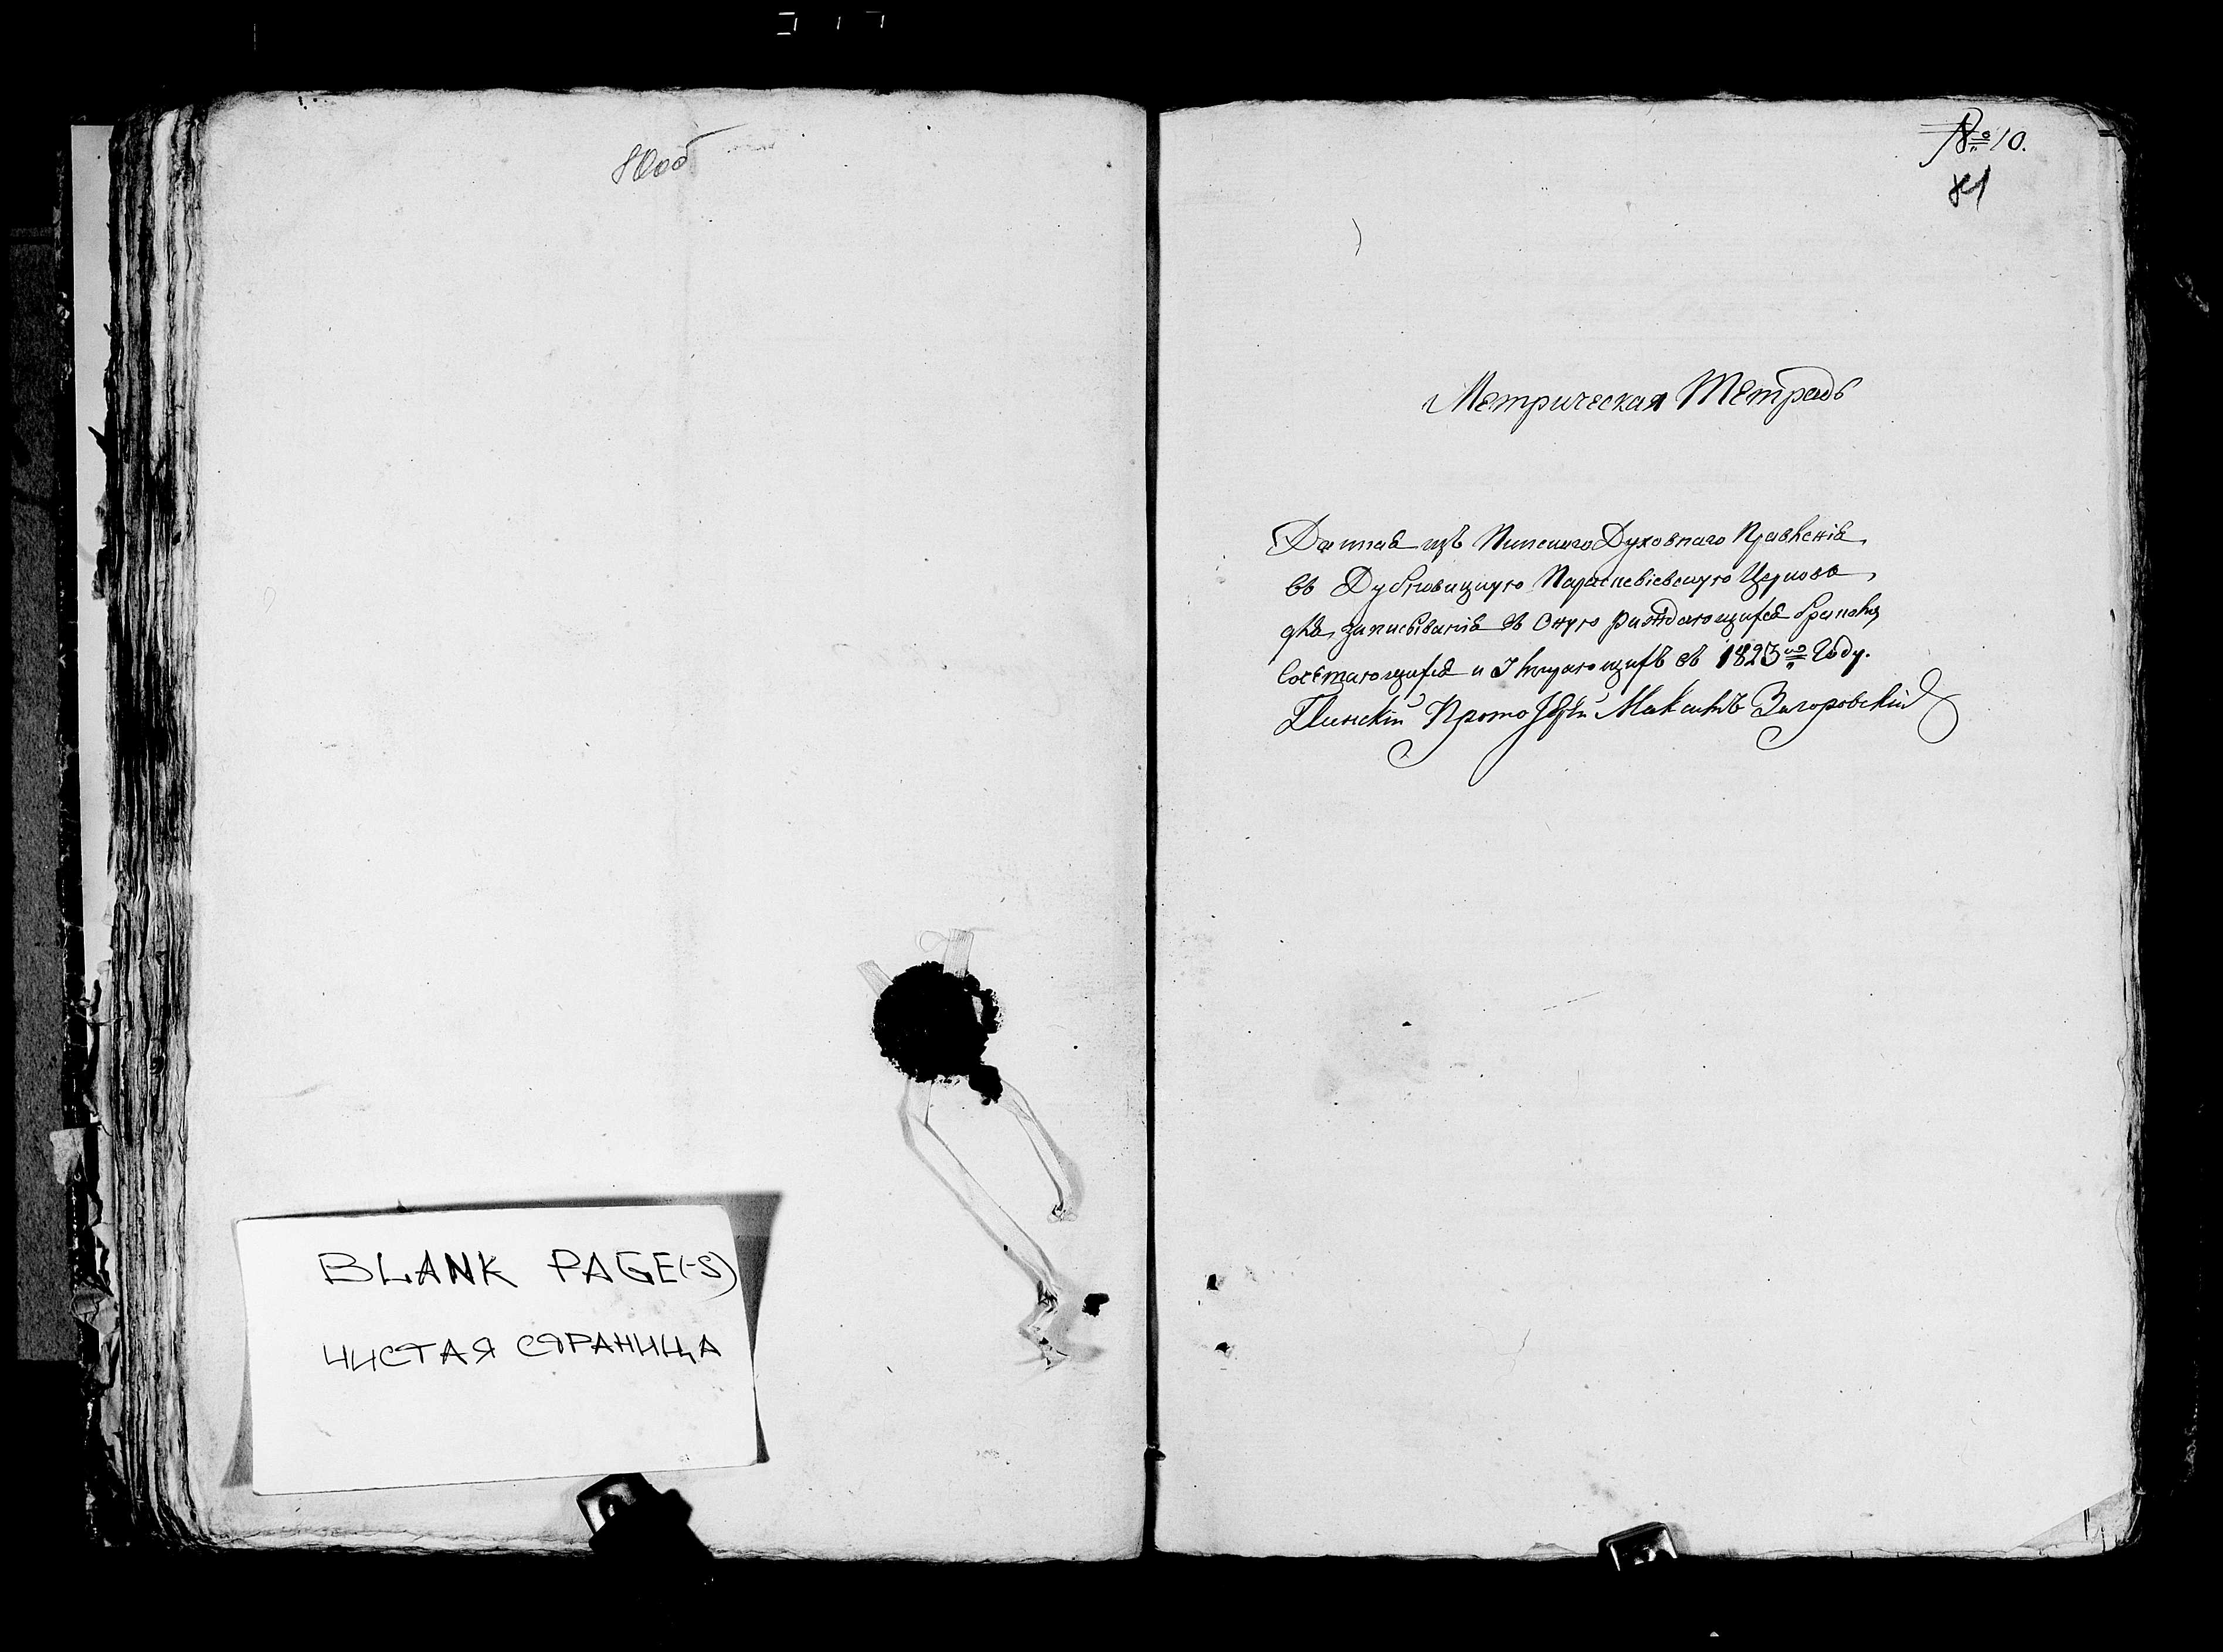 80об
BLANK PAGE(-S)
ЧИСТАЯ СТРАНИЦА
№ 10.
81
Метрическая Тетрадь
Данная изъ Пинскаго Духовнаго Правленія
въ Дубновицкую Параскевіевскую Церковь
для записыванія въ оную раждающихся браком
Состающихся и Умирающихъ въ 1823го Году.
Пинскій Протоіерей Максимъ Загоровскій